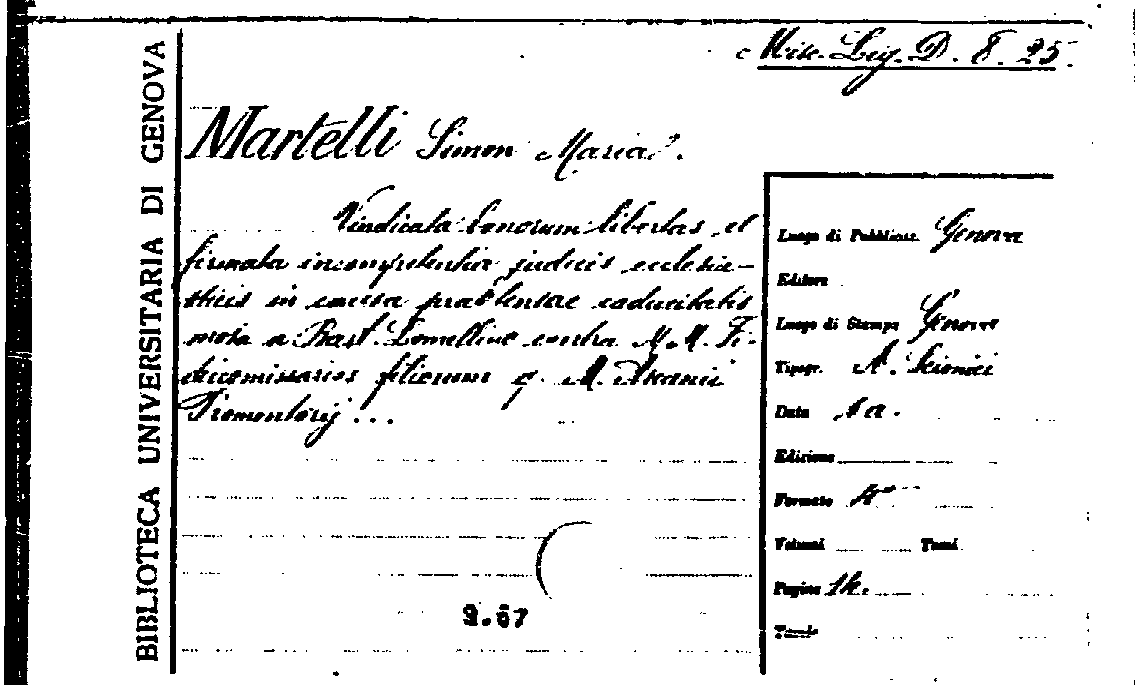 Misc. Lig. D. 8. 25.
BIBLIOTECA UNIVERSITARIA DI GENOVA
Martelli Simon Maria.
Vindicata bonorum libertas, et
firmata incompetentia judicis ecclesia-
sticis in causa praetensae caducitatis
mota a Bast. Lomellino contra M. M. Fi-
deicomissarios filiorum q. M. Ascanii
Promontorij ...
Luogo di Pubblicaz. Genova
Editore
Luogo di Stampa Genova
Tipogr. A. Scionici
Data s.a.
Edizione
Formato 4°
Volumi Tomi
Pagine 14.
Tavole
9.67